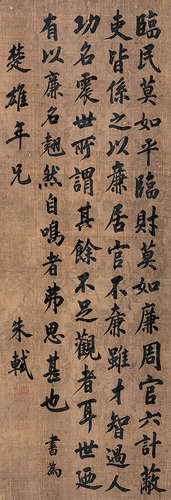 臨民莫如平臨財莫如廉周官六計蔽
吏皆係之以廉居官不廉雖才智過人
功名震世所謂其餘不足觀者耳世廼
有以廉名翹然自鳴者弗思甚也 書為
楚雄年兄
朱軾